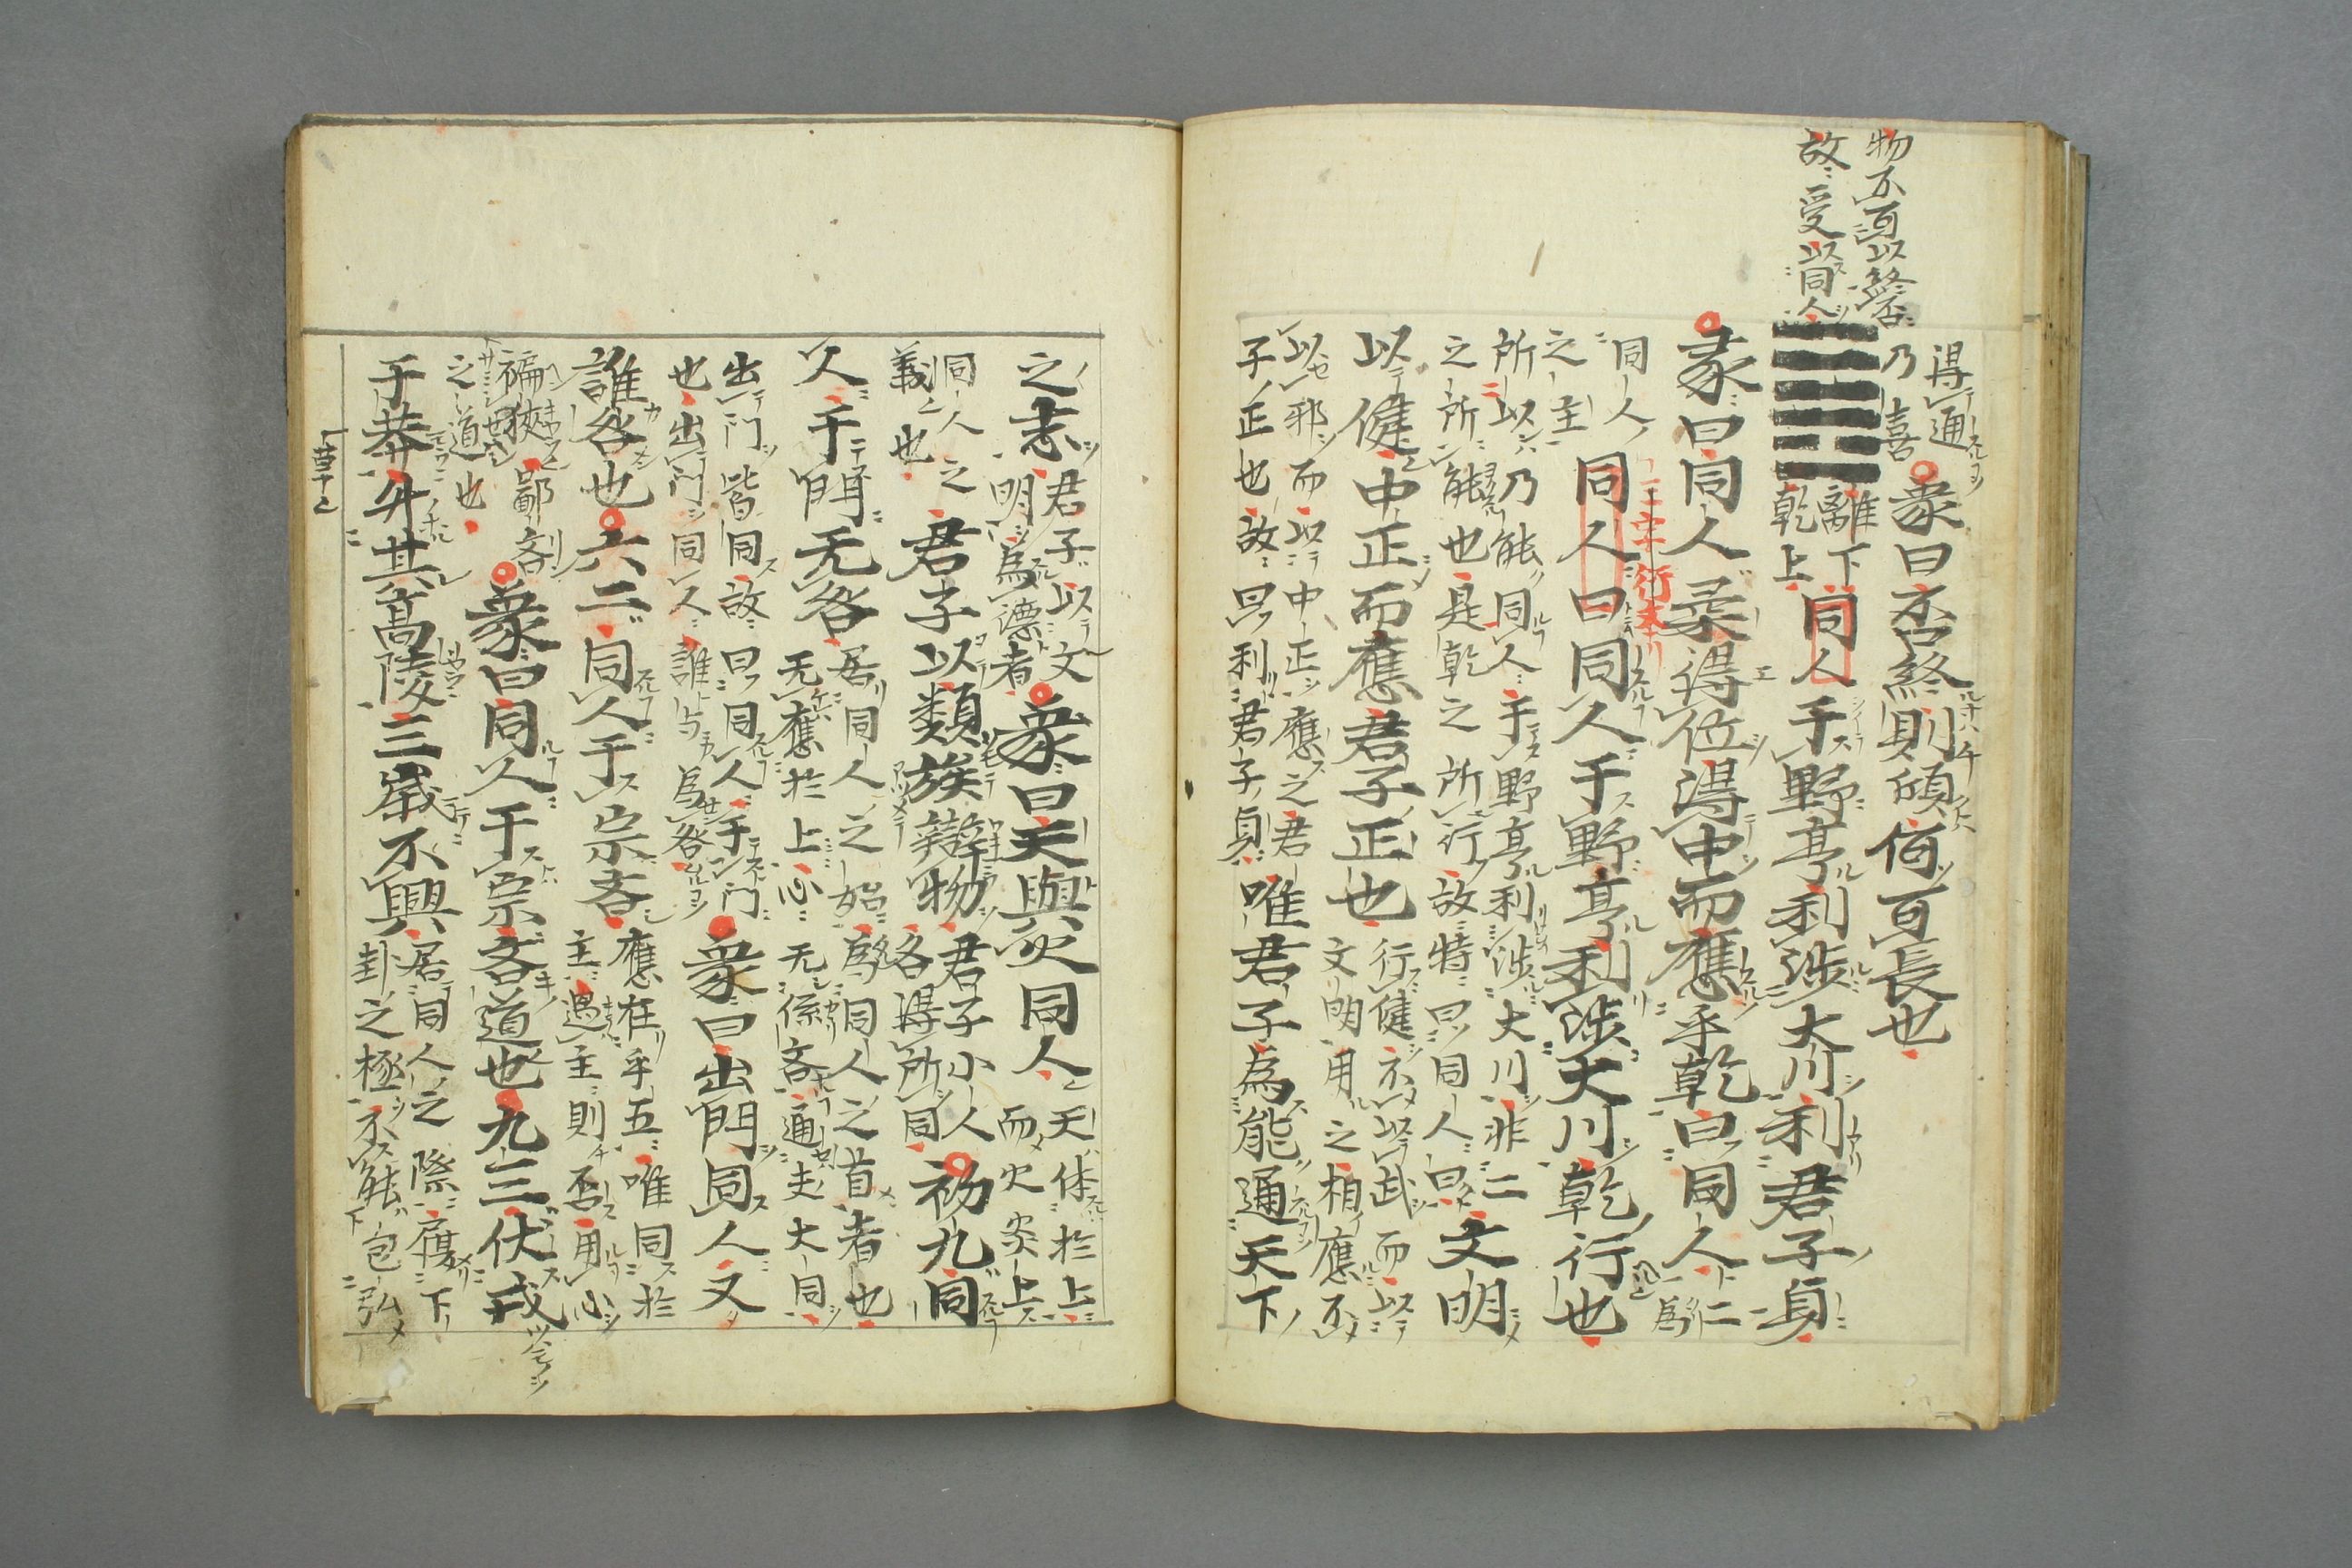 物不可以終否
故受以同人
得通
乃喜
象曰否終則傾何可長也
離下
乾上
同人于野亨利涉大川利君子貞
彖曰同人柔得位得中而應乎乾曰同人二為
同人
之主
同人曰同人于野亨利涉大川乾行也
二字衍本
所以乃能同人于野亨利涉大川非二
之所能也是乾之所行故特曰同人曰
文明
以健中正而應君子正也
行健不以武而以
文明用之相應不
以邪而以中正應之君
子正也故曰利君子貞
唯君子為能通天下
之志
君子以文
明為德者
象曰天與火同人
天体於上
而火炎上
同人之
義也
君子以類族辯物
君子小人
各得所同
初九同
人于門无咎
居同人之始為同人之首者也
无應於上心无係吝通夫大同
出門皆同故曰同人于門
也出門同人誰与為咎
象曰出門同人又
誰咎也六二同人于宗吝
應在乎五唯同於
主過主則否用心
褊狹鄙吝
之道也
象曰同人于宗吝道也九三伏戎
于莽升其高陵三歲不興
居同人之際履下
卦之極不能包弘